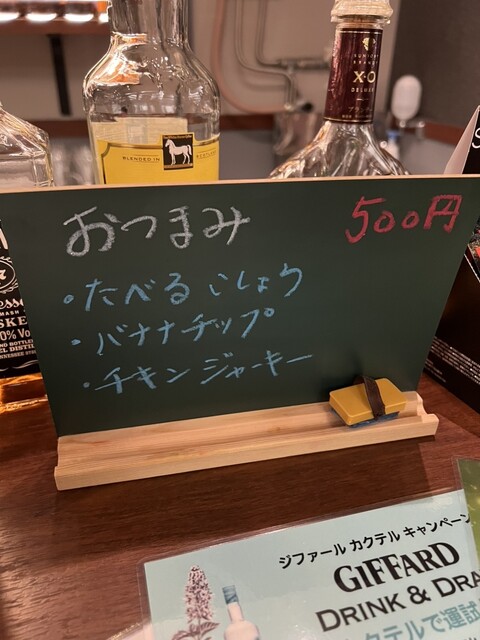 X.O
BLENDED IN SCOTLAND
おつまみ 500円
・たべるこしょう
・バナナチップ
・チキンジャーキー
ジファール カクテル キャンペーン
GIFFARD
DRINK & DRA
テルで運試